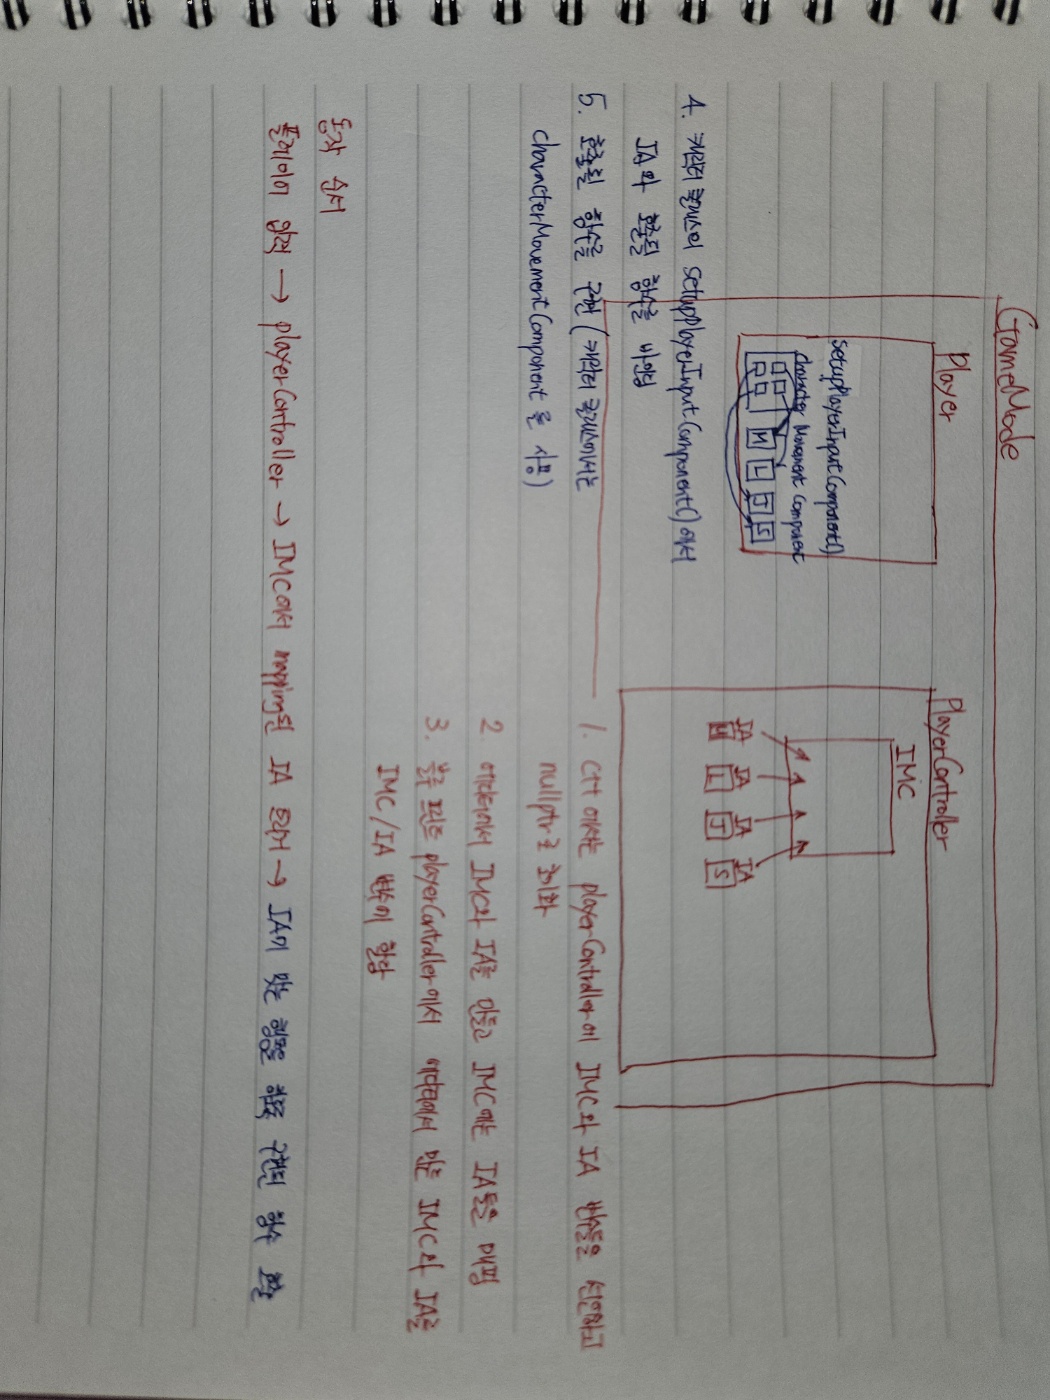 GameMode
Player
SetupPlayerInputComponent()
Character Movement Component
M L J S
PlayerController
IMC
IA IA IA IA
M L J S
1. C++에서는 playerController에 IMC와 IA 변수들을 선언하고
nullptr로 초기화
2. 에디터에서 IMC와 IA를 만들고 IMC에는 IA들을 매핑
3. 블루프린트 playerController에서 에디터에서 만든 IMC와 IA를
IMC/IA 변수에 할당
4. 캐릭터 클래스의 SetupPlayerInputComponent()에서
IA와 호출될 함수를 바인딩
5. 호출될 함수를 구현 (캐릭터 클래스에서는
characterMovementComponent를 사용)
동작 순서
플레이어 입력 → playerController → IMC에서 mapping된 IA → IA에 맞는 행동을 하도록 구현된 함수 호출